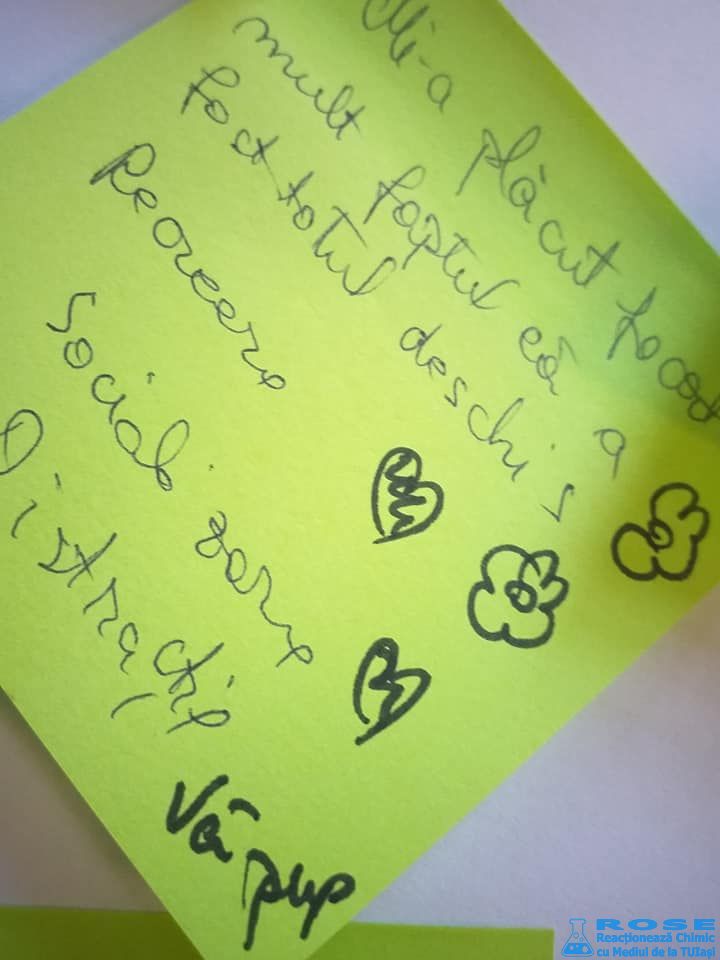 Mi-a plăcut
mult faptul că a
fost totul deschis
Recreere
Socializare
Distracție
Vă pup
ROSE
Reacționează Chimic
cu Mediul de la TUIași